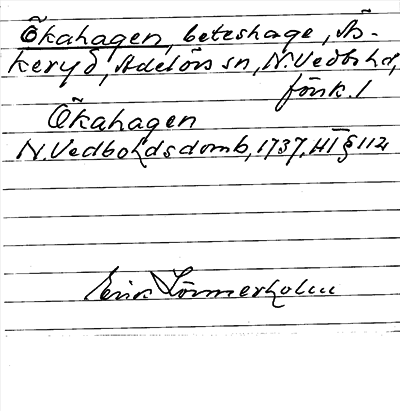 Ökahagen, beteshage, Å-
keryd, Adelövs sn, N.Vedbo hd,
Jönk. l
Ökahagen
N. Vedbo hds domb, 1737, HT § 112
Erik Lörmerholm